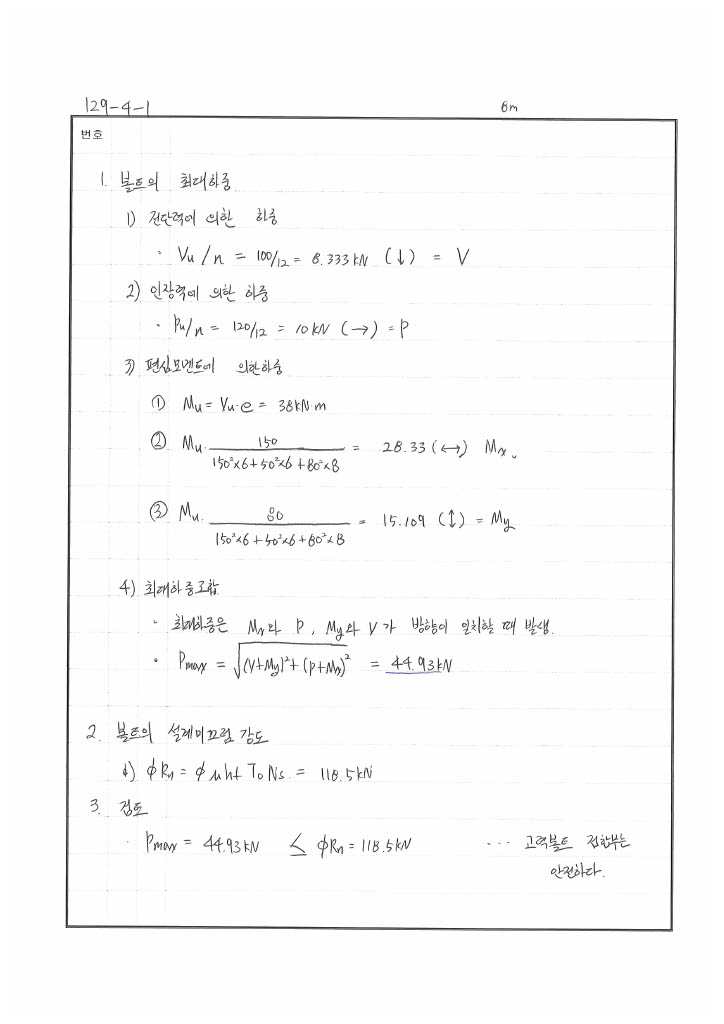 129-4-1
6m
번호
1. 볼트의 최대하중
1) 전단력에 의한 하중
· Vu/n = 100/12 = 8.333kN (↓) = V
2) 인장력에 의한 하중
· Pu/n = 120/12 = 10kN (→) = P
3) 편심모멘트에 의한하중
① Mu = Vu·e = 38kN·m
② Mu· 150 / 150²×6+50²×6+80²×8 = 28.33 (↔) Mx
③ Mu· 80 / 150²×6+50²×6+80²×8 = 15.109 (↕) = My
4) 최대하중조합
· 최대하중은 Mx와 P, My와 V가 방향이 일치할 때 발생.
· Pmax = √(V+My)²+(P+Mx)² = 44.93kN
2. 볼트의 설계미끄럼 강도
1) ϕRn = ϕ μ hf To Ns = 118.5kN
3. 검토
· Pmax = 44.93kN ≤ ϕRn = 118.5kN ··· 고력볼트 접합부는
안전하다.